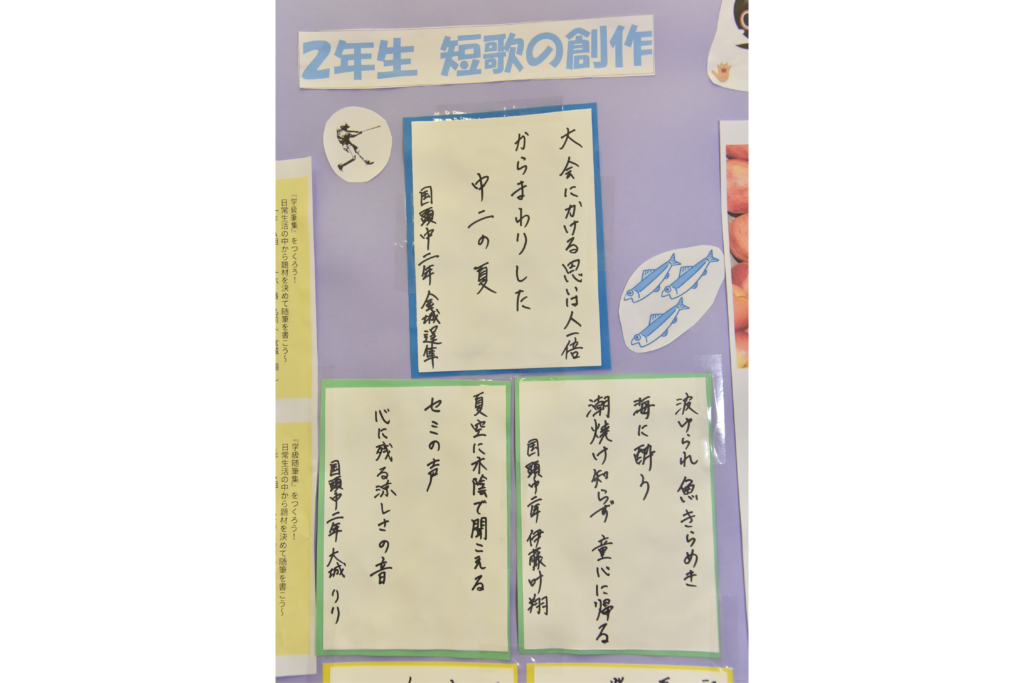 2年生 短歌の創作
大会にかける思いは人一倍
からまわりした
中二の夏
国頭中二年 金城 隼
波ゆられ 魚きらめき
海に酔う
潮焼け知らず 童心に帰る
国頭中二年 伊藤叶翔
夏空に木陰で聞こえる
セミの声
心に残る涼しさの音
国頭中二年 大城 りり
『学級随筆集』をつくろう！
日常生活の中から題材を決めて随筆を書こう～
『学級随筆集』をつくろう！
日常生活の中から題材を決めて随筆を書こう～